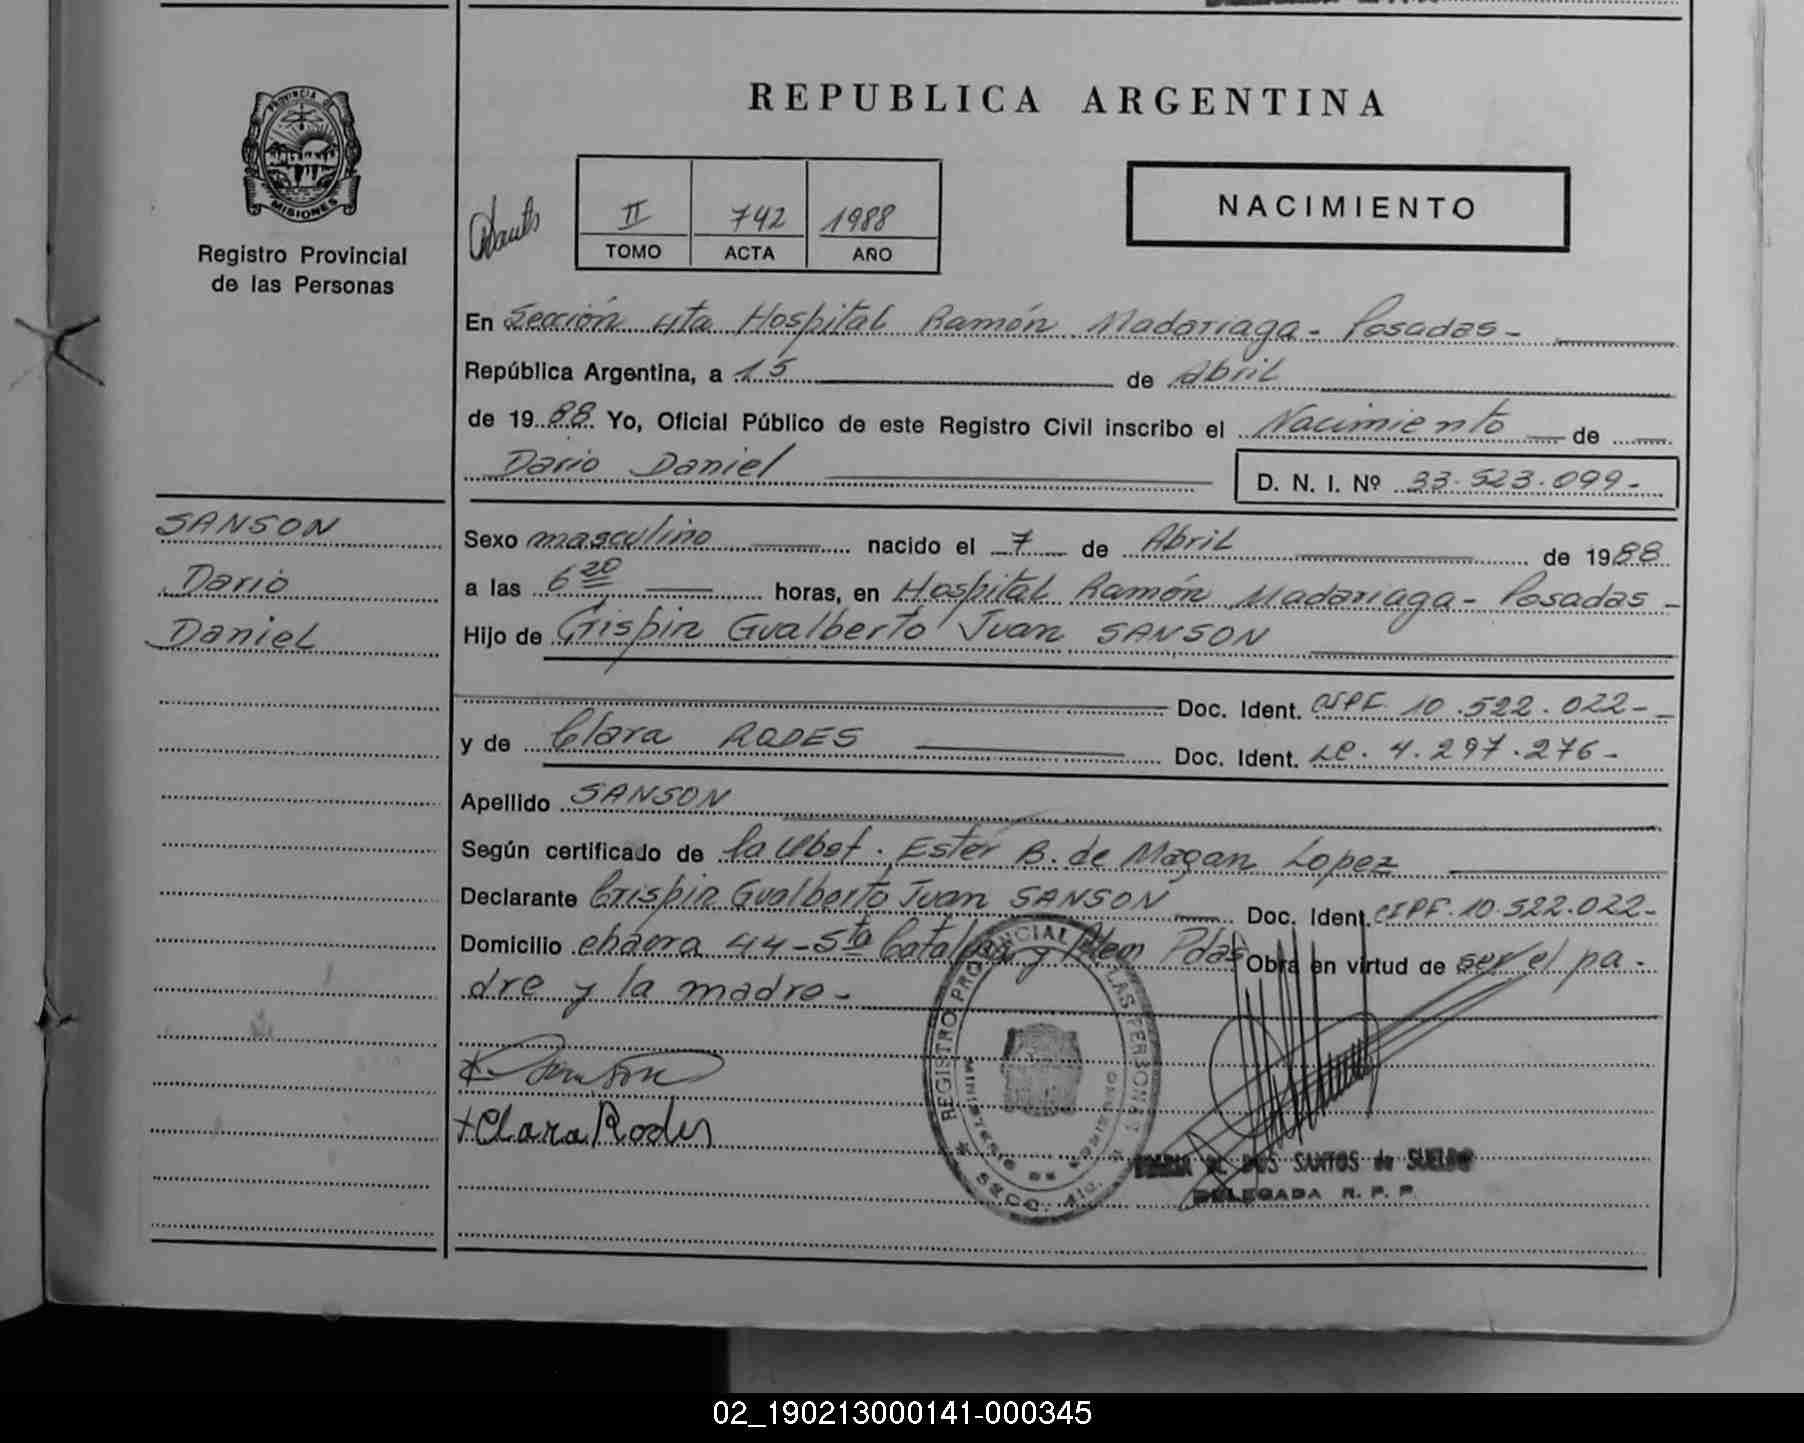 REPUBLICA ARGENTINA
PROVINCIA DE
MISIONES
Registro Provincial
de las Personas
II 742 1988
TOMO ACTA AÑO
NACIMIENTO
En Sección 4ta Hospital Ramón Madariaga - Posadas -
República Argentina, a 15 de Abril
de 1988. Yo, Oficial Público de este Registro Civil inscribo el Nacimiento de
Dario Daniel D. N. I. Nº 33.523.099-
SANSON
Dario
Daniel
Sexo masculino nacido el 7 de Abril de 1988
a las 6 20 horas, en Hospital Ramón Madariaga - Posadas -
Hijo de Crispin Gualberto Juan SANSON
Doc. Ident. CIPF. 10.522.022-
y de Clara RODES Doc. Ident. LC. 4.297.276-
Apellido SANSON
Según certificado de la Obst. Ester B. de Magan Lopez
Declarante Crispin Gualberto Juan SANSON Doc. Ident. CIPF. 10.522.022-
Domicilio chacra 44 - Sta Catalina y Alem Pdas Obra en virtud de ser el pa-
dre y la madre-
Sanson
+Clara Rodes
REGISTRO PROVINCIAL DE LAS PERSONAS
MINISTERIO DE GOBIERNO
SECC. 4ta.
DOS SANTOS de SUELDO
DELEGADA R. P. P.
02_190213000141-000345